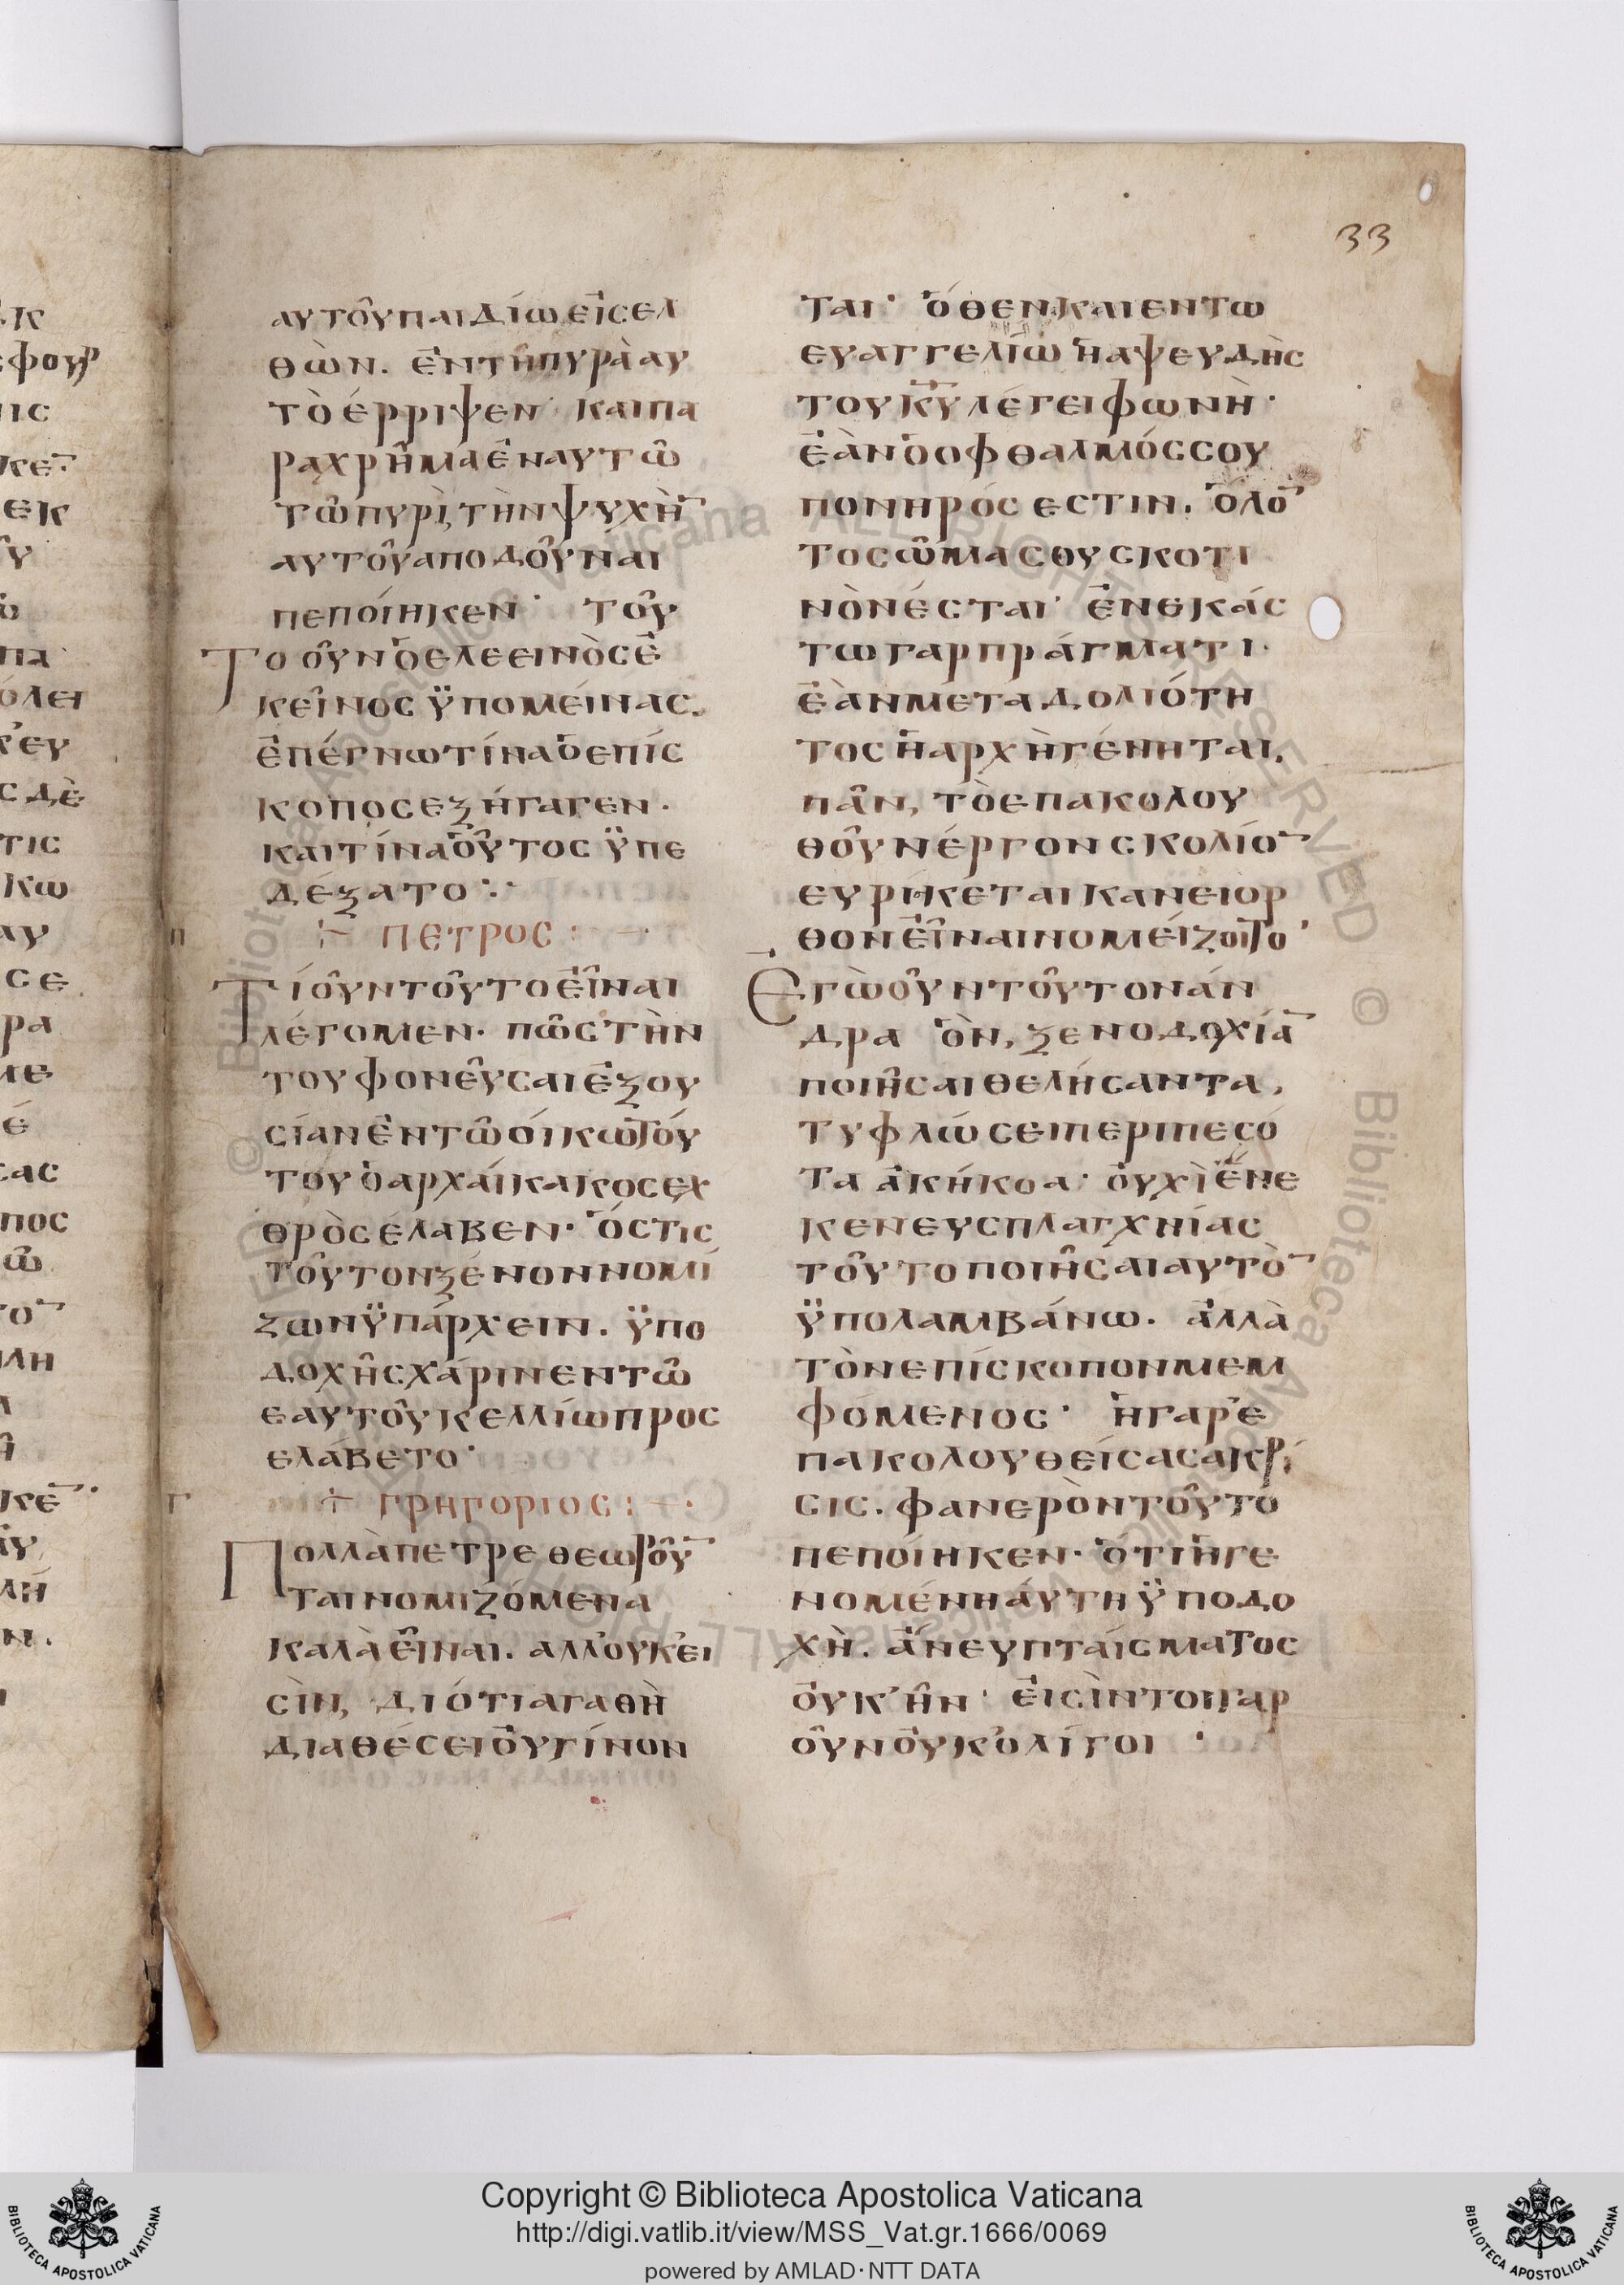 33
αυτοῦ παιδίω εἰσελ
θὼν. ἐν τῆ πυρὰ αυ
τὸ έρριψεν· και πα
ραχρῆμα ἐν αυτῶ
τῶ πυρὶ, τὴν ψυχὴ̄
αυτοῦ αποδοῦναι
πεποίηκεν· τοῦ
Το οῦν ὁ ελεεινὸς ἐ
κεῖνος ϋπομείνας.
ἐπέγνω τίνα ὁ επίσ
κοπος εξήγαγεν.
και τίνα οὗτος ϋπε
δέξατο:·
π + ΠΕΤΡΟC:
Τί οῦν τοῦτο εἶναι
λέγομεν. πῶς τὴν
του φονεῦσαι ἐξου
σίαν ἐν τῶ οίκω τού
του ὁ αρχαίκακος εχ
θρὸς έλαβεν· ὅστις
τοῦτον ξένον νομί
ζων ϋπάρχειν. ϋπο
δοχῆς χάριν εν τῶ
εαυτοῦ κελλίω προσ
ελάβετο·
γ + ΓΡΗΓΟΡΙΟC:
Πολλὰ πετρε θεωροῦ̄
ται νομιζόμενα
καλὰ εἶναι. αλλ' ουκ' ει
σὶν, διότι αγαθὴ
διαθέσει οὐ γίνον
ται· ὅθεν και εν τω
ευαγγελίω ἡ αψευδὴς
του κ̅υ̅ λέγει φωνὴ·
ἐὰν ὁ οφθαλμός σου
πονηρός εστιν. ὅλο̄
το σῶμα σου σκοτι
νὸν έσται· ἐν εκάσ
τω γαρ πράγματι.
ἐὰν μετα δολιότη
τος ἡ αρχὴ γένηται,
πᾶν, τὸ επακολου
θοῦν έργον σκολίο̄
ευρήκεται καν ει ὀρ
θον εἶναι νομείζοιτο·
Εγὼ οῦν τοῦτον άν
δρα ὃν, ξενοδοχίᾱ
ποιῆσαι θελήσαντα,
τυφλώσει περιπεσό
τα ἀκήκοα· ὀυχὶ ἕνε
κεν ευσπλαγχνίας
τοῦτο ποιῆσαι αυτὸ̄
ϋπολαμβάνω. ἀλλὰ
τὸν επίσκοπον μεμ
φόμενος· ἡ γαρ ε
πακολουθείσασα κρί
σις. φανερὸν τοῦτο
πεποίηκεν. ὅτι ἡ γε
νομένη άυτη ϋποδο
χὴ. ἄνευ πταίσματος
ὀυκ' ῆν· ἐισὶν τοι γαρ
οῦν ὀυκ' ολίγοι·
Copyright © Biblioteca Apostolica Vaticana
http://digi.vatlib.it/view/MSS_Vat.gr.1666/0069
powered by AMLAD·NTT DATA